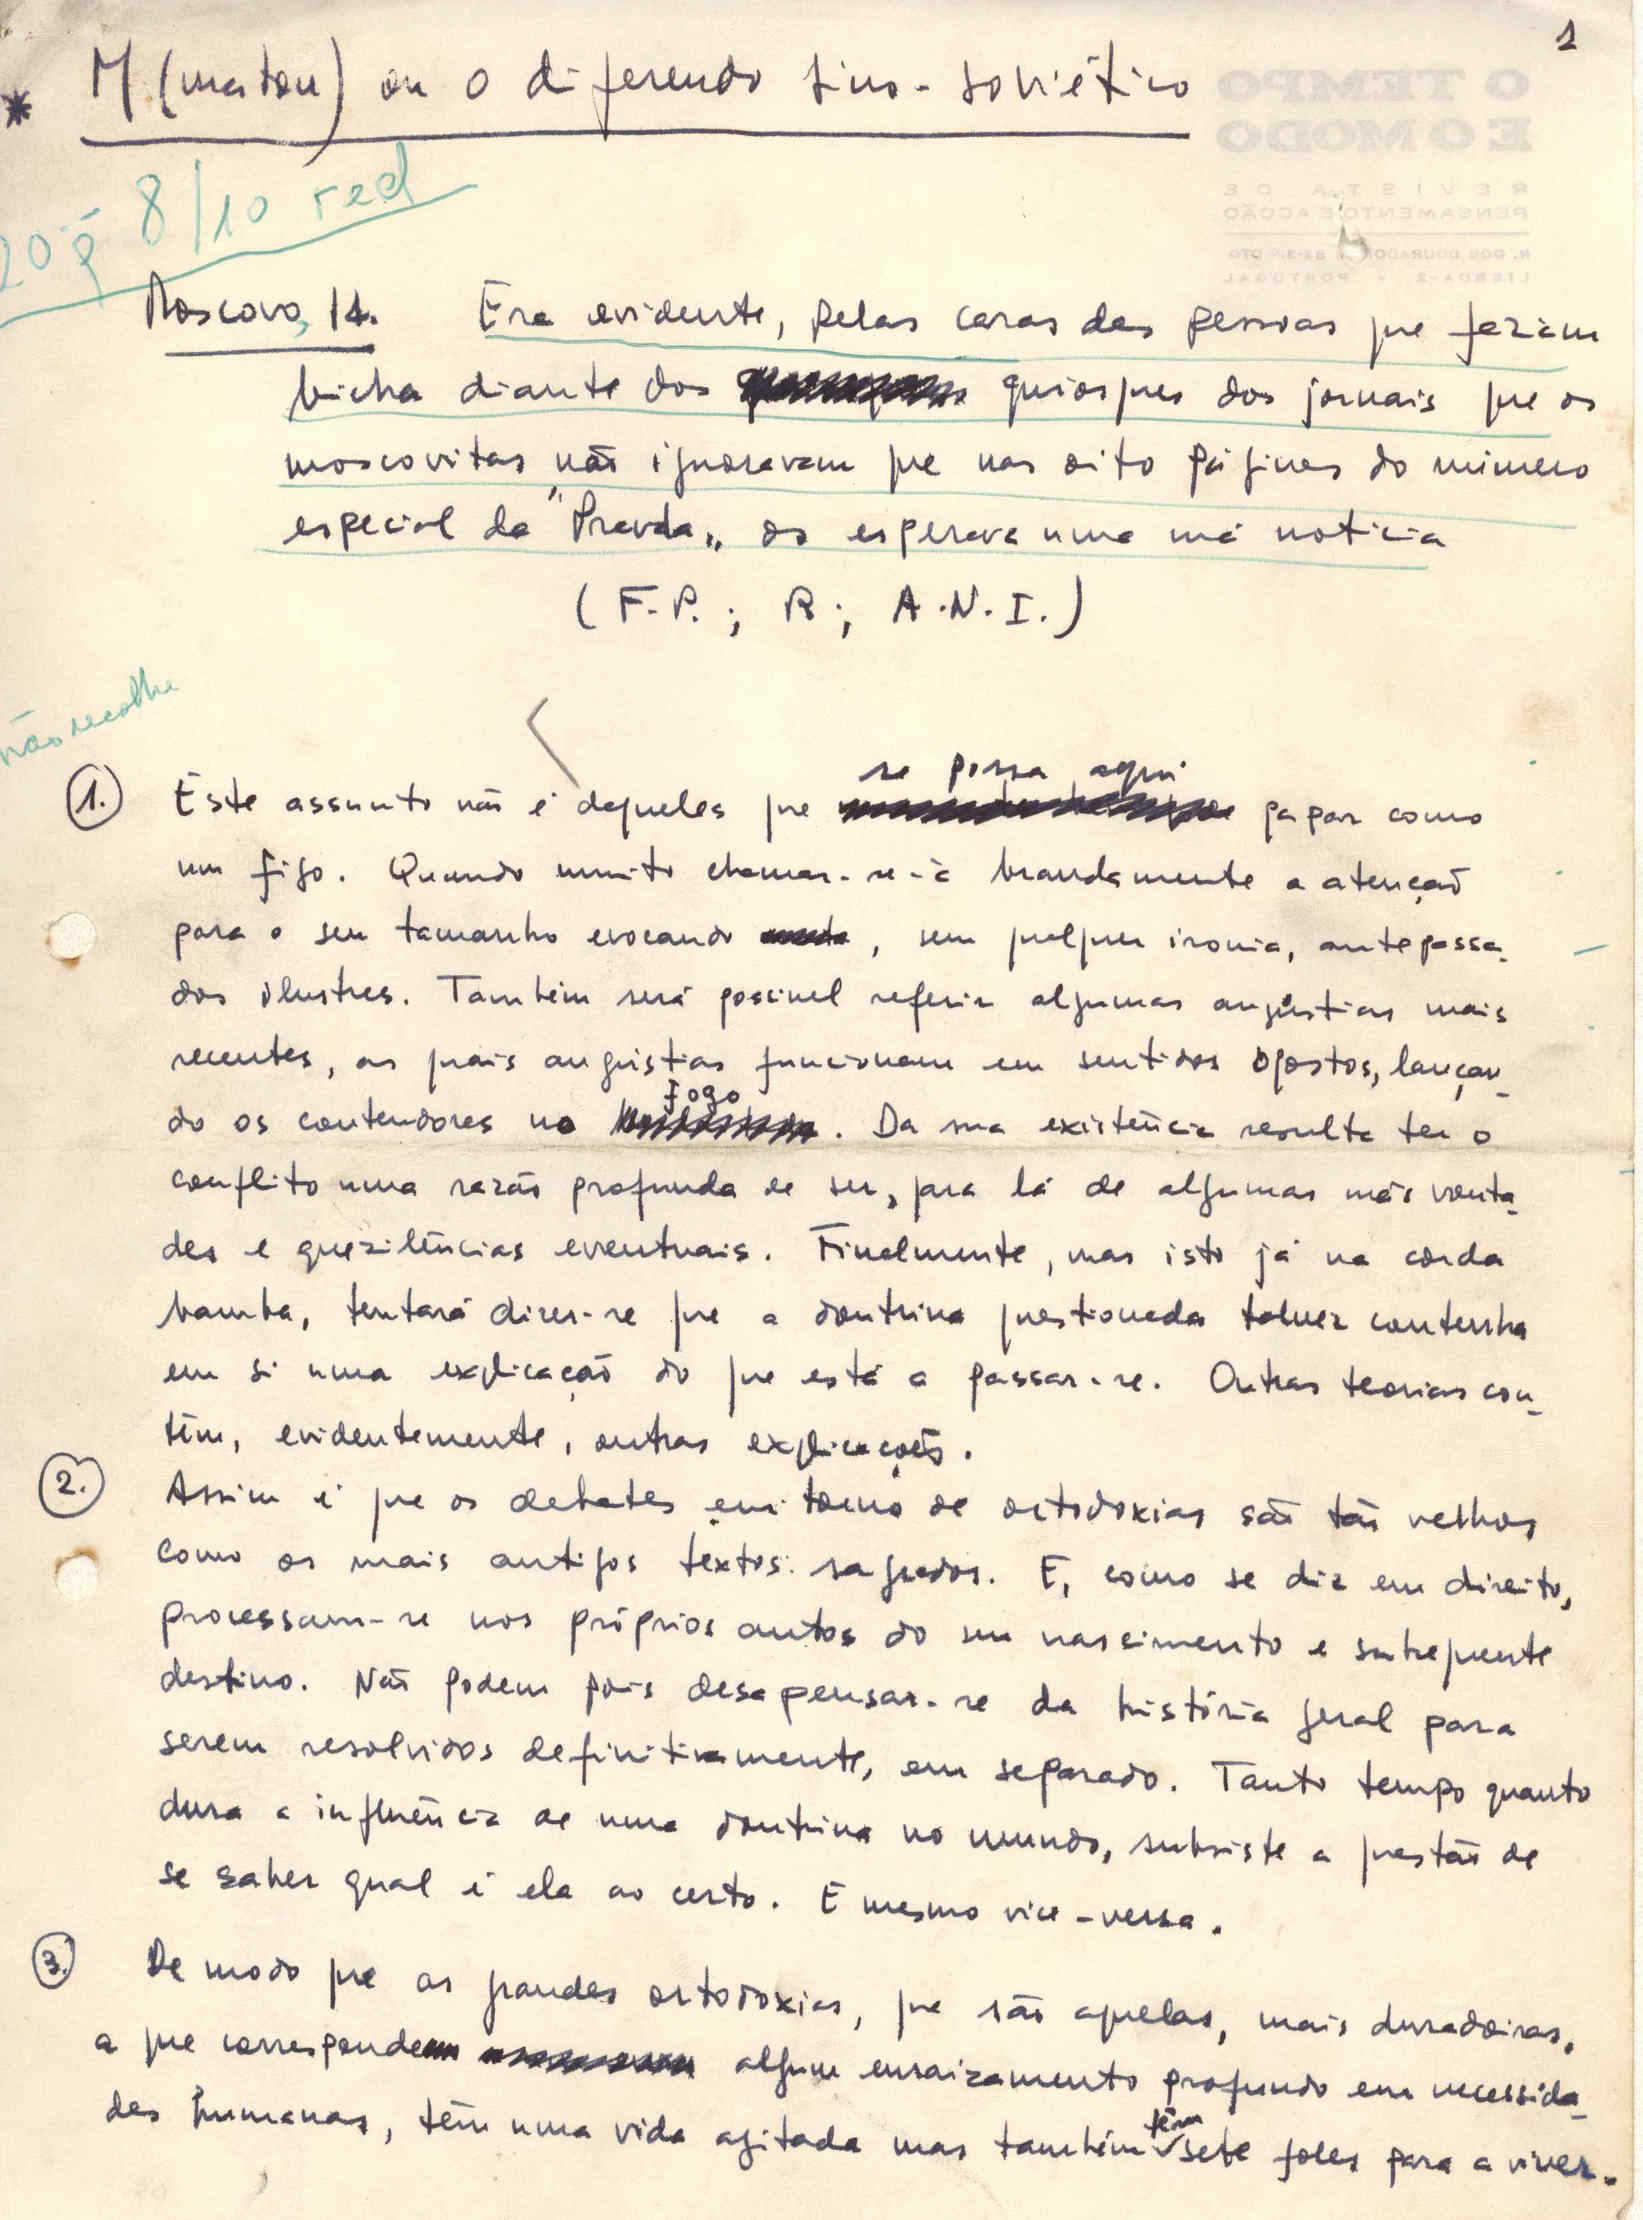 1
* M (matou) ou o diferendo sino-soviético
O TEMPO
E O MODO
REVISTA DE
PENSAMENTO E ACÇÃO
R. DOS DOURADORES
LISBOA-2 PORTUGAL
20 p 8/10 red
Moscovo, 14. Era evidente, pelas caras das pessoas que faziam
bicha diante dos quiosques dos jornais que os
moscovitas não ignoravam que nas oito páginas do número
especial da "Pravda" os esperava uma má notícia
(F.P.; R; A.N.I.)
não recolhe
1. Este assunto não é daqueles que se possa aqui papar como
um figo. Quando muito chamar-se-à brandamente a atenção
para o seu tamanho evocando, sem qualquer ironia, antepassa-
dos ilustres. Também será possível referir algumas angústias mais
recentes, as quais angústias funcionam em sentidos opostos, lançan-
do os contendores no fogo. Da sua existência resulta ter o
conflito uma razão profunda de ser, para lá de algumas más vonta-
des e quezilências eventuais. Finalmente, mas isto já na corda
bamba, tentará dizer-se que a doutrina questionada talvez contenha
em si uma explicação do que está a passar-se. Outras teorias con-
têm, evidentemente, outras explicações.
2. Assim é que os debates em torno de ortodoxias são tão velhos
como os mais antigos textos sagrados. E, como se diz em direito,
processam-se nos próprios autos do seu nascimento e subsequente
destino. Não podem pois desapensar-se da história geral para
serem resolvidos definitivamente, em separado. Tanto tempo quanto
dura a influência de uma doutrina no mundo, subsiste a questão de
se saber qual é ela ao certo. E mesmo vice-versa.
3. De modo que as grandes ortodoxias, que são aquelas, mais duradoiras,
a que correspondem algum enraizamento profundo em necessida-
des humanas, têm uma vida agitada mas também têm sete foles para a viver.